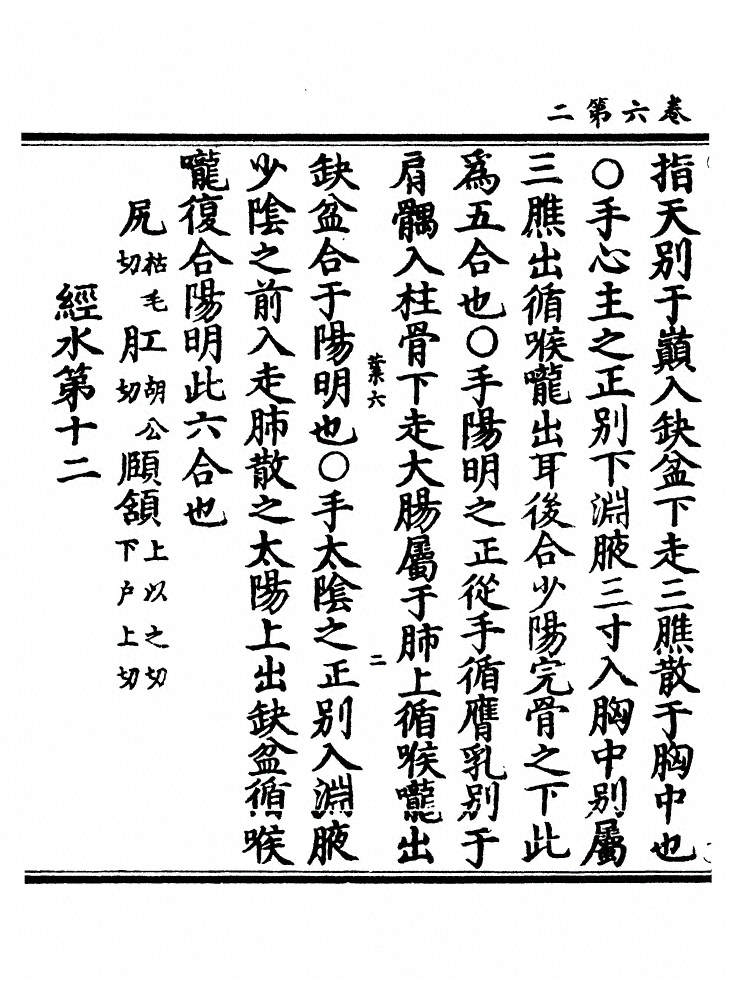 卷六第二
指天别于巔入缺盆下走三膲散于胸中也
〇手心主之正别下淵腋三寸入胸中别屬
三膲出循喉嚨出耳後合少陽完骨之下此
爲五合也〇手陽明之正從手循膺乳别于
肩髃入柱骨下走大腸屬于肺上循喉嚨出
葉六
二
缺盆合于陽明也〇手太陰之正别入淵腋
少陰之前入走肺散之太陽上出缺盆循喉
嚨復合陽明此六合也
尻枯毛切肛胡公切頥頟上以之切下户上切
經水第十二